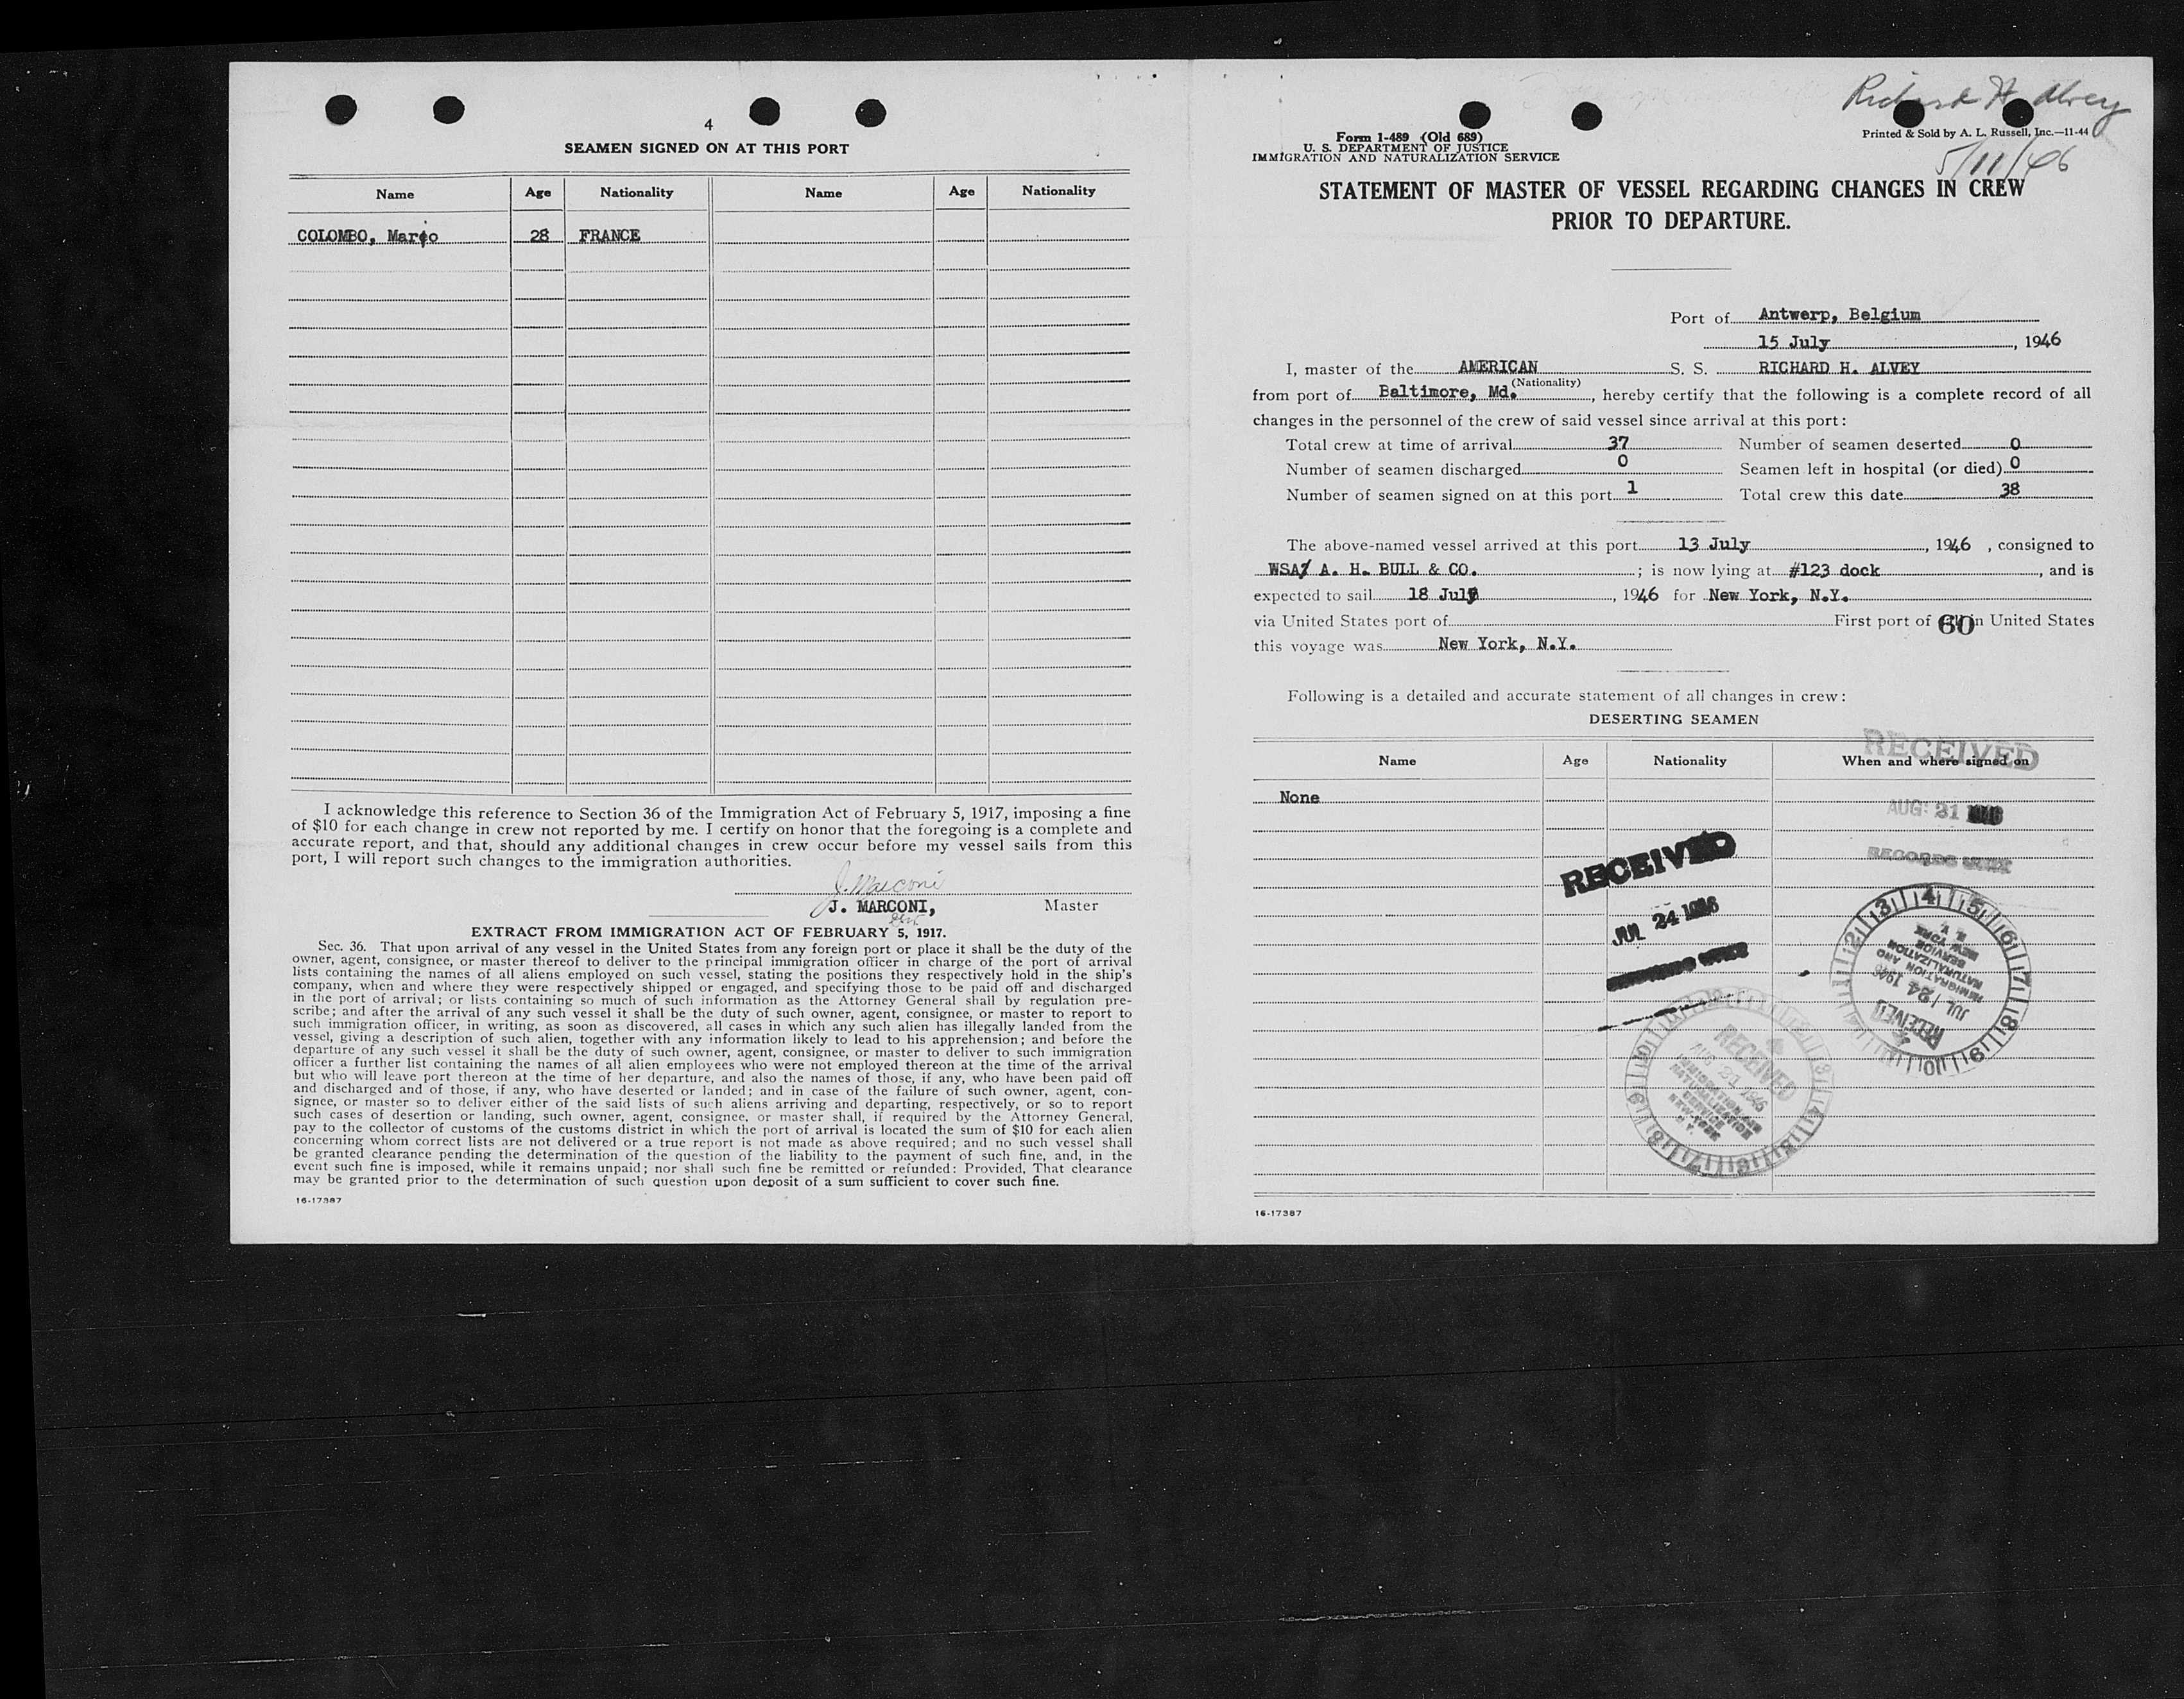 4
SEAMEN SIGNED ON AT THIS PORT
Name Age Nationality Name Age Nationality
COLOMBO, Marco 28 FRANCE
I acknowledge this reference to Section 36 of the Immigration Act of February 5, 1917, imposing a fine
of $10 for each change in crew not reported by me. I certify on honor that the foregoing is a complete and
accurate report, and that, should any additional changes in crew occur before my vessel sails from this
port, I will report such changes to the immigration authorities.
J. Marconi
J. MARCONI, Master
EXTRACT FROM IMMIGRATION ACT OF FEBRUARY 5, 1917.
Sec. 36. That upon arrival of any vessel in the United States from any foreign port or place it shall be the duty of the
owner, agent, consignee, or master thereof to deliver to the principal immigration officer in charge of the port of arrival
lists containing the names of all aliens employed on such vessel, stating the positions they respectively hold in the ship's
company, when and where they were respectively shipped or engaged, and specifying those to be paid off and discharged
in the port of arrival; or lists containing so much of such information as the Attorney General shall by regulation pre-
scribe; and after the arrival of any such vessel it shall be the duty of such owner, agent, consignee, or master to report to
such immigration officer, in writing, as soon as discovered, all cases in which any such alien has illegally landed from the
vessel, giving a description of such alien, together with any information likely to lead to his apprehension; and before the
departure of any such vessel it shall be the duty of such owner, agent, consignee, or master to deliver to such immigration
officer a further list containing the names of all alien employees who were not employed thereon at the time of the arrival
but who will leave port thereon at the time of her departure, and also the names of those, if any, who have been paid off
and discharged and of those, if any, who have deserted or landed; and in case of the failure of such owner, agent, con-
signee, or master so to deliver either of the said lists of such aliens arriving and departing, respectively, or so to report
such cases of desertion or landing, such owner, agent, consignee, or master shall, if required by the Attorney General,
pay to the collector of customs of the customs district in which the port of arrival is located the sum of $10 for each alien
concerning whom correct lists are not delivered or a true report is not made as above required; and no such vessel shall
be granted clearance pending the determination of the question of the liability to the payment of such fine, and, in the
event such fine is imposed, while it remains unpaid; nor shall such fine be remitted or refunded: Provided, That clearance
may be granted prior to the determination of such question upon deposit of a sum sufficient to cover such fine.
16-17387
Richard H. Alvey
Form I-489 (Old 689)
U. S. DEPARTMENT OF JUSTICE
IMMIGRATION AND NATURALIZATION SERVICE
Printed & Sold by A. L. Russell, Inc.—11-44
5/11/46
STATEMENT OF MASTER OF VESSEL REGARDING CHANGES IN CREW
PRIOR TO DEPARTURE.
Port of Antwerp, Belgium
15 July, 1946
I, master of the AMERICAN S. S. RICHARD H. ALVEY
(Nationality)
from port of Baltimore, Md., hereby certify that the following is a complete record of all
changes in the personnel of the crew of said vessel since arrival at this port:
Total crew at time of arrival 37 Number of seamen deserted 0
Number of seamen discharged 0 Seamen left in hospital (or died) 0
Number of seamen signed on at this port 1 Total crew this date 38
The above-named vessel arrived at this port 13 July, 1946, consigned to
WSA/ A. H. BULL & CO.; is now lying at #123 dock, and is
expected to sail 18 July, 1946 for New York, N.Y.
via United States port of First port of 60 in United States
this voyage was New York, N.Y.
Following is a detailed and accurate statement of all changes in crew:
DESERTING SEAMEN
RECEIVED
Name Age Nationality When and where signed on
None
AUG 21
RECEIVED
JUL 24 1946
RECEIVED
JUL 24 1946
IMMIGRATION AND
NATURALIZATION
SERVICE
NEW YORK
N. Y.
RECEIVED
AUG 21 1946
IMMIGRATION AND
NATURALIZATION
SERVICE
NEW YORK
N. Y.
16-17387